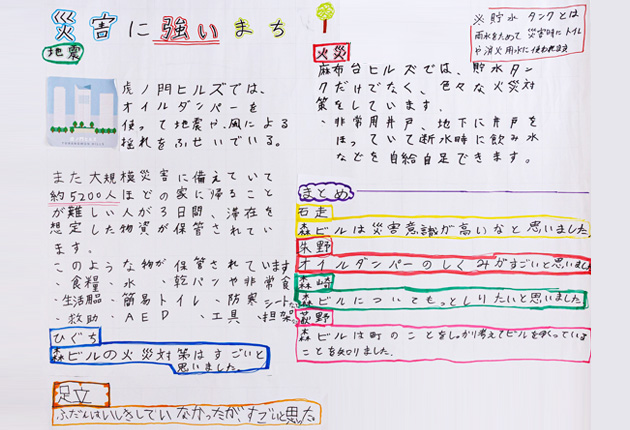 災害に強いまち
地震
虎ノ門ヒルズでは、
オイルダンパーを
使って地震や、風による
揺れをふせいでいる。
また大規模災害に備えていて
約5200人ほどの家に帰ること
が難しい人が3日間、滞在を
想定した物資が保管されてい
ます。
このような物が保管されています
・食糧、水、乾パンや非常食
・生活用品、簡易トイレ、防寒シート
・救助、AED、工具、担架
ひぐち
森ビルの火災対策はすごいと
思いました。
足立
ふだんはいしきしていなかったが、すごいと思った。
※貯水タンクとは
雨水をためて災害時にトイレ
や消火用水に使われます
火災
麻布台ヒルズでは、貯水タン
クだけでなく、色々な火災対
策をしています。
・非常用井戸、地下に井戸を
ほっていて断水時に飲み水
などを自給自足できます。
まとめ
石走
森ビルは災害意識が高いなと思いました。
朱野
オイルダンパーのしくみがすごいと思いました
森崎
森ビルについてもっとしりたいと思いました
荻野
森ビルは町のことをしっかり考えてビルをつくっている
ことを知りました。